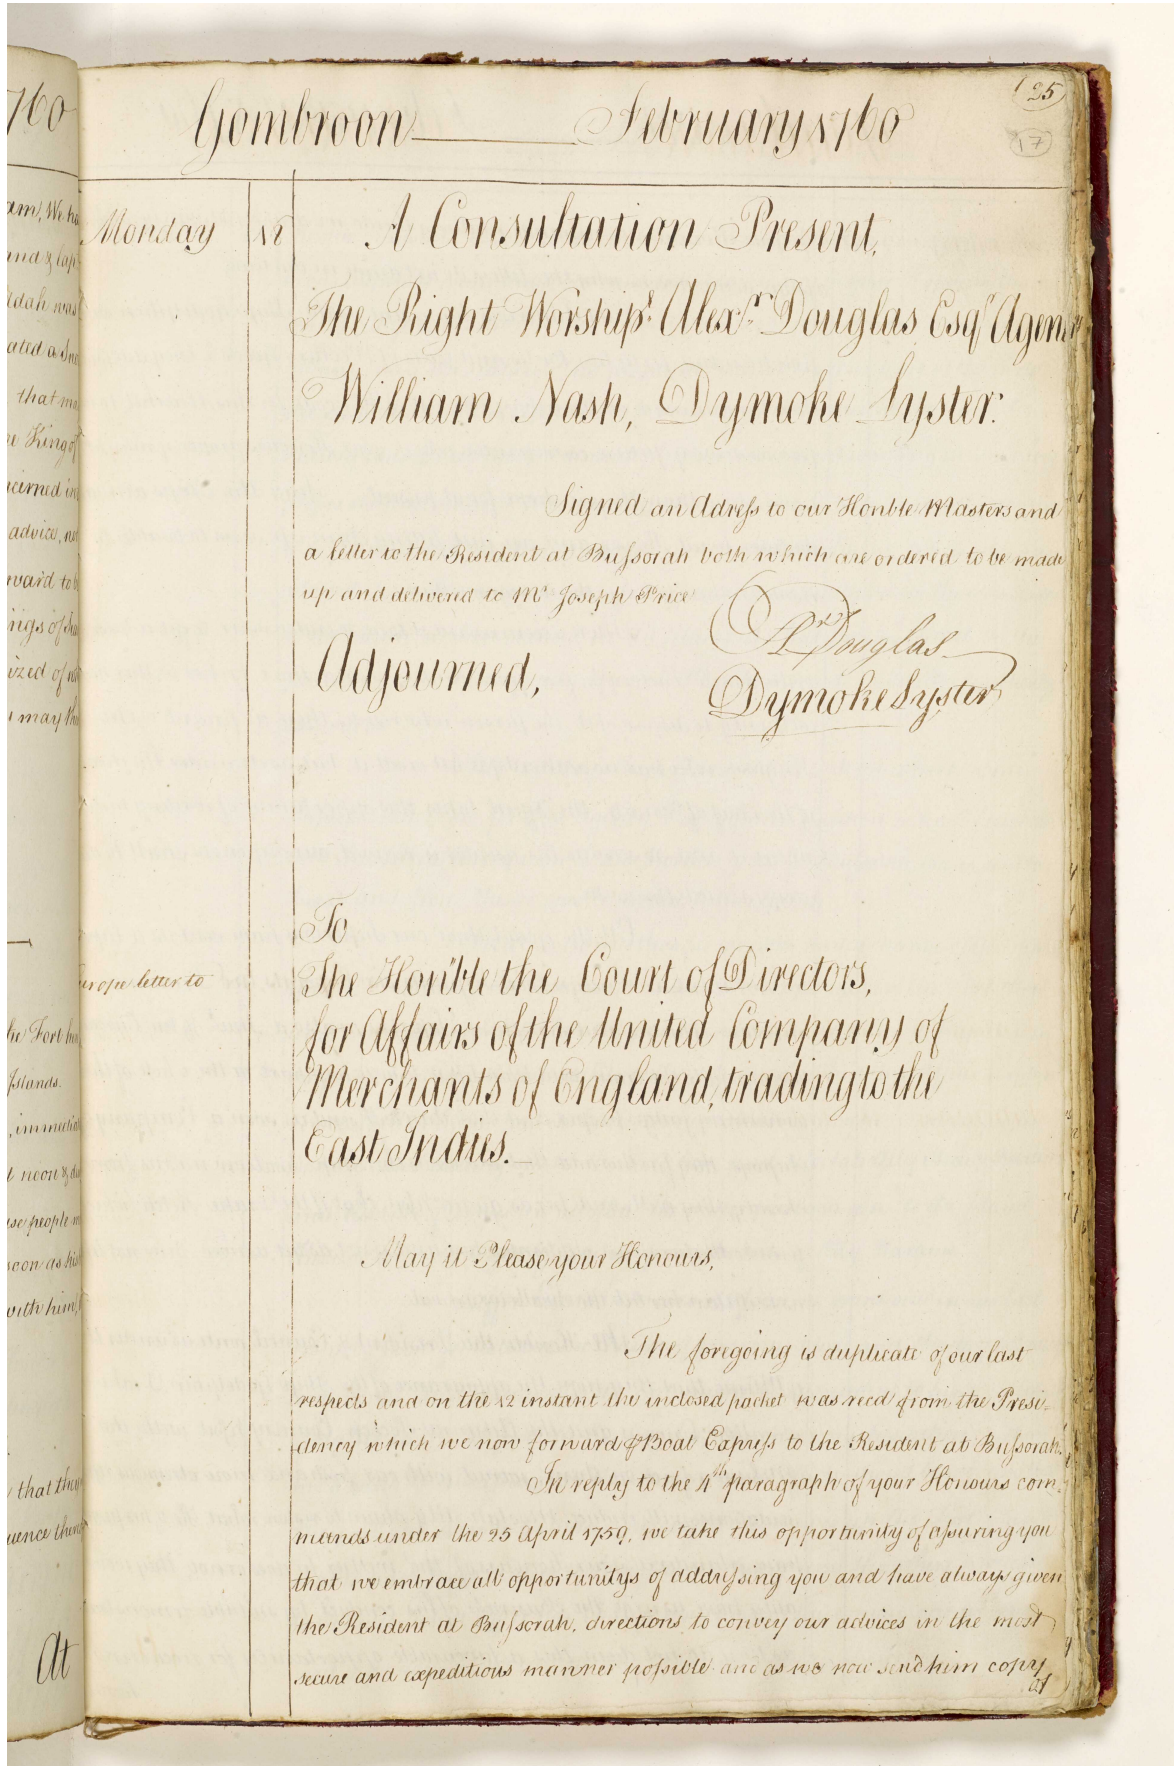 Gombroon February 1760
25
17
Monday 12 A Consultation Present,
The Right Worship.l Alex.r Douglas Esq.r Agent
William Nash, Dymoke Lyster.
Signed an Adress to our Honble Masters and
a letter to the Resident at Bussorah both which are ordered to be made
up and delivered to Mr Joseph Price
Alexr Douglas
Adjourned,
Dymoke Lyster
To
Europe letter to
The Hon'ble the Court of Directors,
for Affairs of the United Company of
Merchants of England, trading to the
East Indies.
May it Please your Honours,
The foregoing is duplicate of our last
respects and on the 12 instant the inclosed packet was recd from the Presi-
dency which we now forward Boat Express to the Resident at Bussorah.
In reply to the 4th paragraph of your Honours com-
mands under the 25 April 1759, we take this opportunity of assuring you
that we embrace all opportunitys of addressing you and have always given
the Resident at Bussorah, directions to convey our advices in the most
secure and expeditious manner possible and as we now send him copy
of
760
am, We ha
and & Cap
dah was
ated a
that ma
King of
cerned in
advice, no
ward to b
ings of
ized of
may th
he Fort
Islands.
immediat
noon &
se people
soon as his
with him,
that
uence ther
At